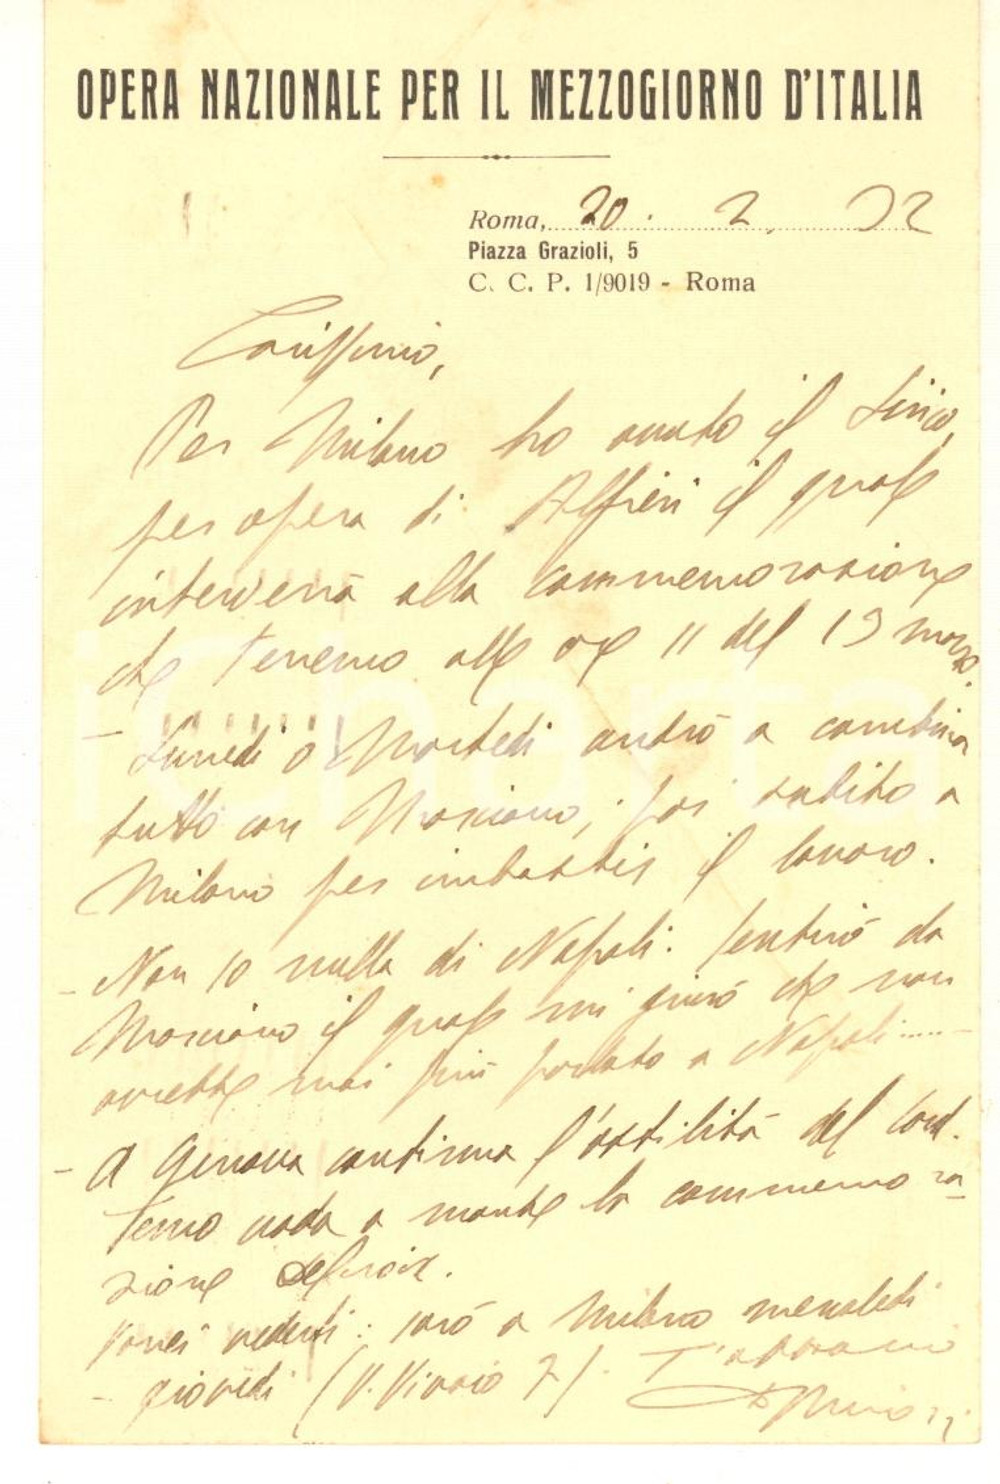 OPERA NAZIONALE PER IL MEZZOGIORNO D'ITALIA
Roma, 20. 2. 32
Piazza Grazioli, 5
C. C. P. 1/9019 - Roma
Carissimo,
Per Milano ho avuto il Lirico,
per opera di Alfieri il quale
interverrà alla commemorazione
che terremo alle ore 11 del 13 marzo.
- Lunedì o Martedì andrò a combinar
tutto con Marciano; poi subito a
Milano per imbastir il lavoro.
- Non so nulla di Napoli. Sentirò da
Marciano il quale mi giurò che non
avrebbe mai più parlato a Napoli......
- A Genova continua l'ostilità del Card.
Temo vada a monte la commemora
zione Delcroix.
Vorrei vederti: sarò a Milano mercoledì
- giovedì (V. Vivaio 7). T'abbraccio